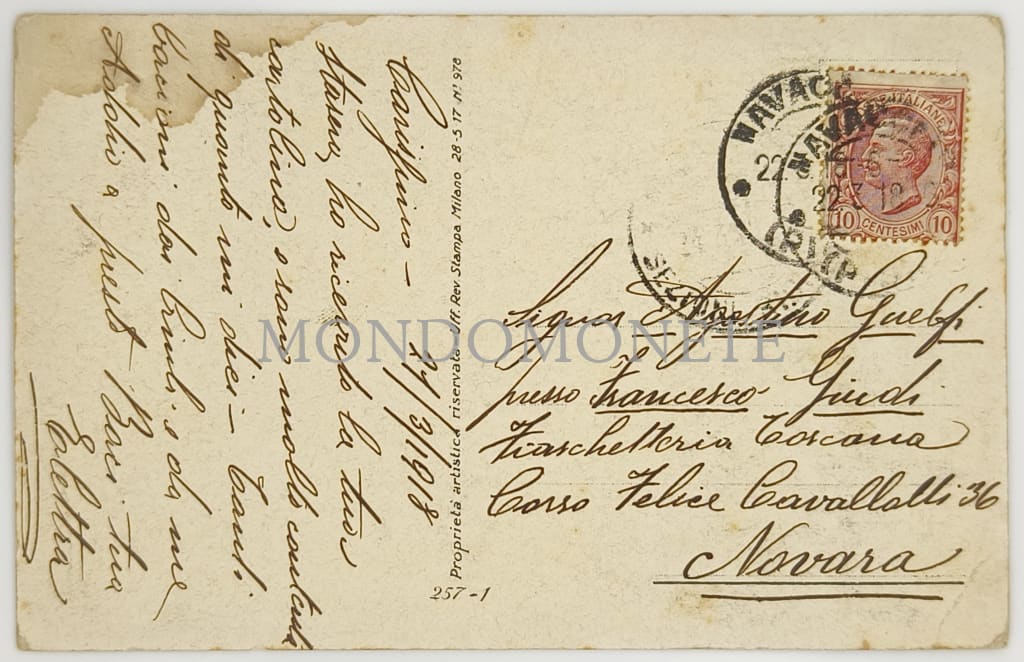 Carissimo – 21/3/1918
Stasera, ho ricevuto la tua
cartolina, e sono molto contenta
di quanto mi dici – Tanti
bacioni dai bimbi e da me
Addio a presto Baci tua
Elettra
Proprietà artistica riservata Uff. Rev. Stampa Milano 28-5 17 Nº 978
257-1
NAVACH
22
NAVA
22 3 18
POSTE ITALIANE
10 CENTESIMI 10
Signor Agostino Guelfi
presso Francesco Giudi
Fiaschetteria Toscana
Corso Felice Cavallotti 36
Novara
MONDOMONETE